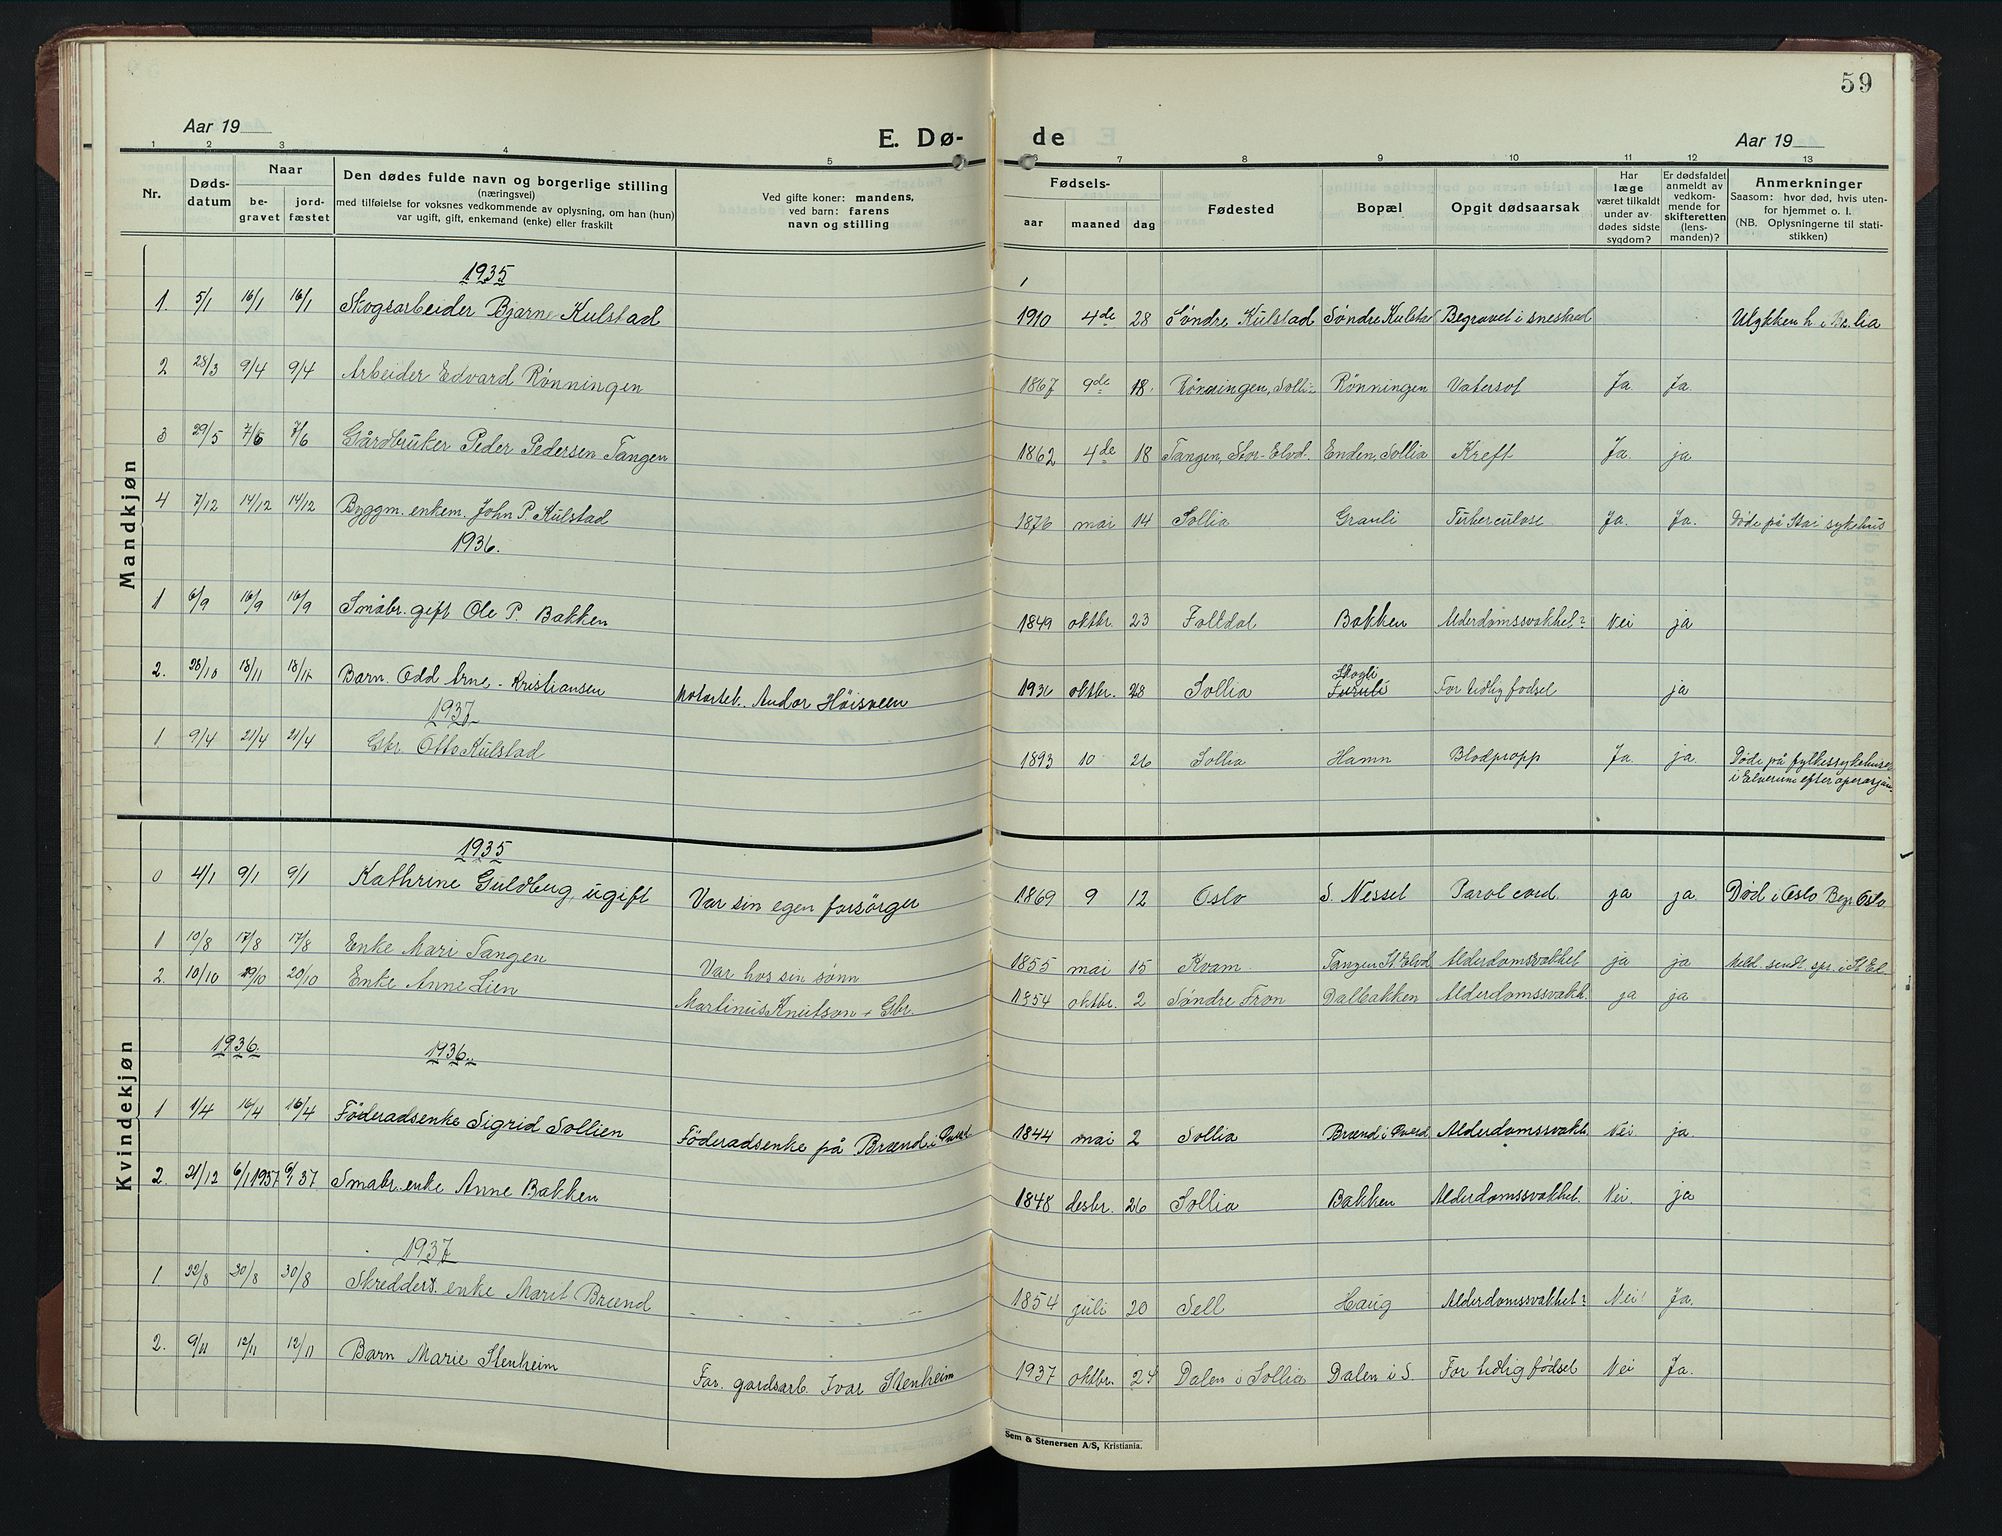 59
Aar 19
E. Dø-
de
Aar 19
1 2 3 4 5 6 7 8 9 10 11 12 13
Nr.
Døds-
datum
Naar
be-
gravet
jord-
fæstet
Den dødes fulde navn og borgerlige stilling
(næringsvei)
med tilføielse for voksnes vedkommende av oplysning, om han (hun)
var ugift, gift, enkemand (enke) eller fraskilt
Ved gifte koner: mandens,
ved barn: farens
navn og stilling
Fødsels-
aar maaned dag
Fødested
Bopæl
Opgit dødsaarsak
Har
læge
været tilkaldt
under av-
dødes sidste
sygdom?
Er dødsfaldet
anmeldt av
vedkom-
mende for
skifteretten
(lens-
manden)?
Anmerkninger
Saasom: hvor død, hvis uten-
for hjemmet o. l.
(NB. Oplysningerne til stati-
stikken)
Mandkjøn
1935
1. 5/1 16/1 16/1 Skogsarbeider Bjarne Kulstad 1910 4de 28 Søndre Kulstad Søndre Kulstad Begravet i sneskred Ulykken h. i lia
2 28/3 9/4 9/4 Arbeider Edvard Rønningen 1867 9de 18. Rønningen, Solli- Rønningen Vatersot Ja Ja.
3 29/5 7/6 7/6 Gårdbruker Peder Pedersen Tangen 1862 4de 18 Tangen, Stor-Elvd. Enden, Sollia Kreft Ja. ja
4 7/12 14/12 14/12 Byggm. enkem. John P. Kulstad 1876 mai 14 Sollia Grauli Tuberculose. Ja. Ja. Døde på Stai sykehus
1936.
1 6/9 16/9 16/9 Småbr. gift Ole P. Bakken 1849 oktbr. 23 Folldal Bakken Alderdomssvakhet? Nei ja
2. 28/10 18/11 18/11 Barn. Odd Arne - Kristiansen Andor Høisveen 1936 oktbr. 28 Sollia Skogli Furuli For tidlig fødsel ja
1937
1 9/4 21/4 21/4 Gbr. Otto Kulstad 1893 10 26 Sollia Hamn Blodpropp Ja. ja. Døde på fylkessykehuset
i Elverum efter operasjon.
Kvindekjøn
1935
0 4/1 9/1 9/1 Kathrine Guldberg, ugift Var sin egen forsørger 1869 9 12 Oslo S. Nesset ja ja. Død i Oslo Begr. Oslo
1 10/8 17/8 17/8 Enke Mari Tangen 1855 mai 15 Kvam Tangen St. Elvd. Alderdomssvakhet ja ja Meld. sendt spr. i St. El.
2 10/10 20/10 Enke Anne Lien Var hos sin sønn
Martinus Knutson + Gbr. 1854 oktbr. 2 Søndre Fron Dalbakken Alderdomssvakh. ja ja
1936. 1936.
1 1/4 16/4 16/4 Föderadsenke Sigrid Sollien Föderadsenke på Brænd i 1844 mai 2 Sollia Brænd i Alderdomssvakh. Nei ja.
2. 21/12 6/1 1937 6/1 37 Smabr. enke Anne Bakken 1848 desbr. 26 Sollia Bakken Alderdomssvakhet. Nei ja
1937
1 22/8 30/8 30/8 Skredders. enke Marit Brænd - - - - - - 1854 juli 20 Sell Haug Alderdomssvakhet? Nei! Ja.
2. 9/11 12/11 12/11 Barn Marie Stenheim Far. gardsarb. Ivar Stenheim 1937 oktbr. 24 Dalen i Sollia Dalen i S. For tidlig fødsel Nei Ja.
Sem & Stenersen A/S, Kristiania.